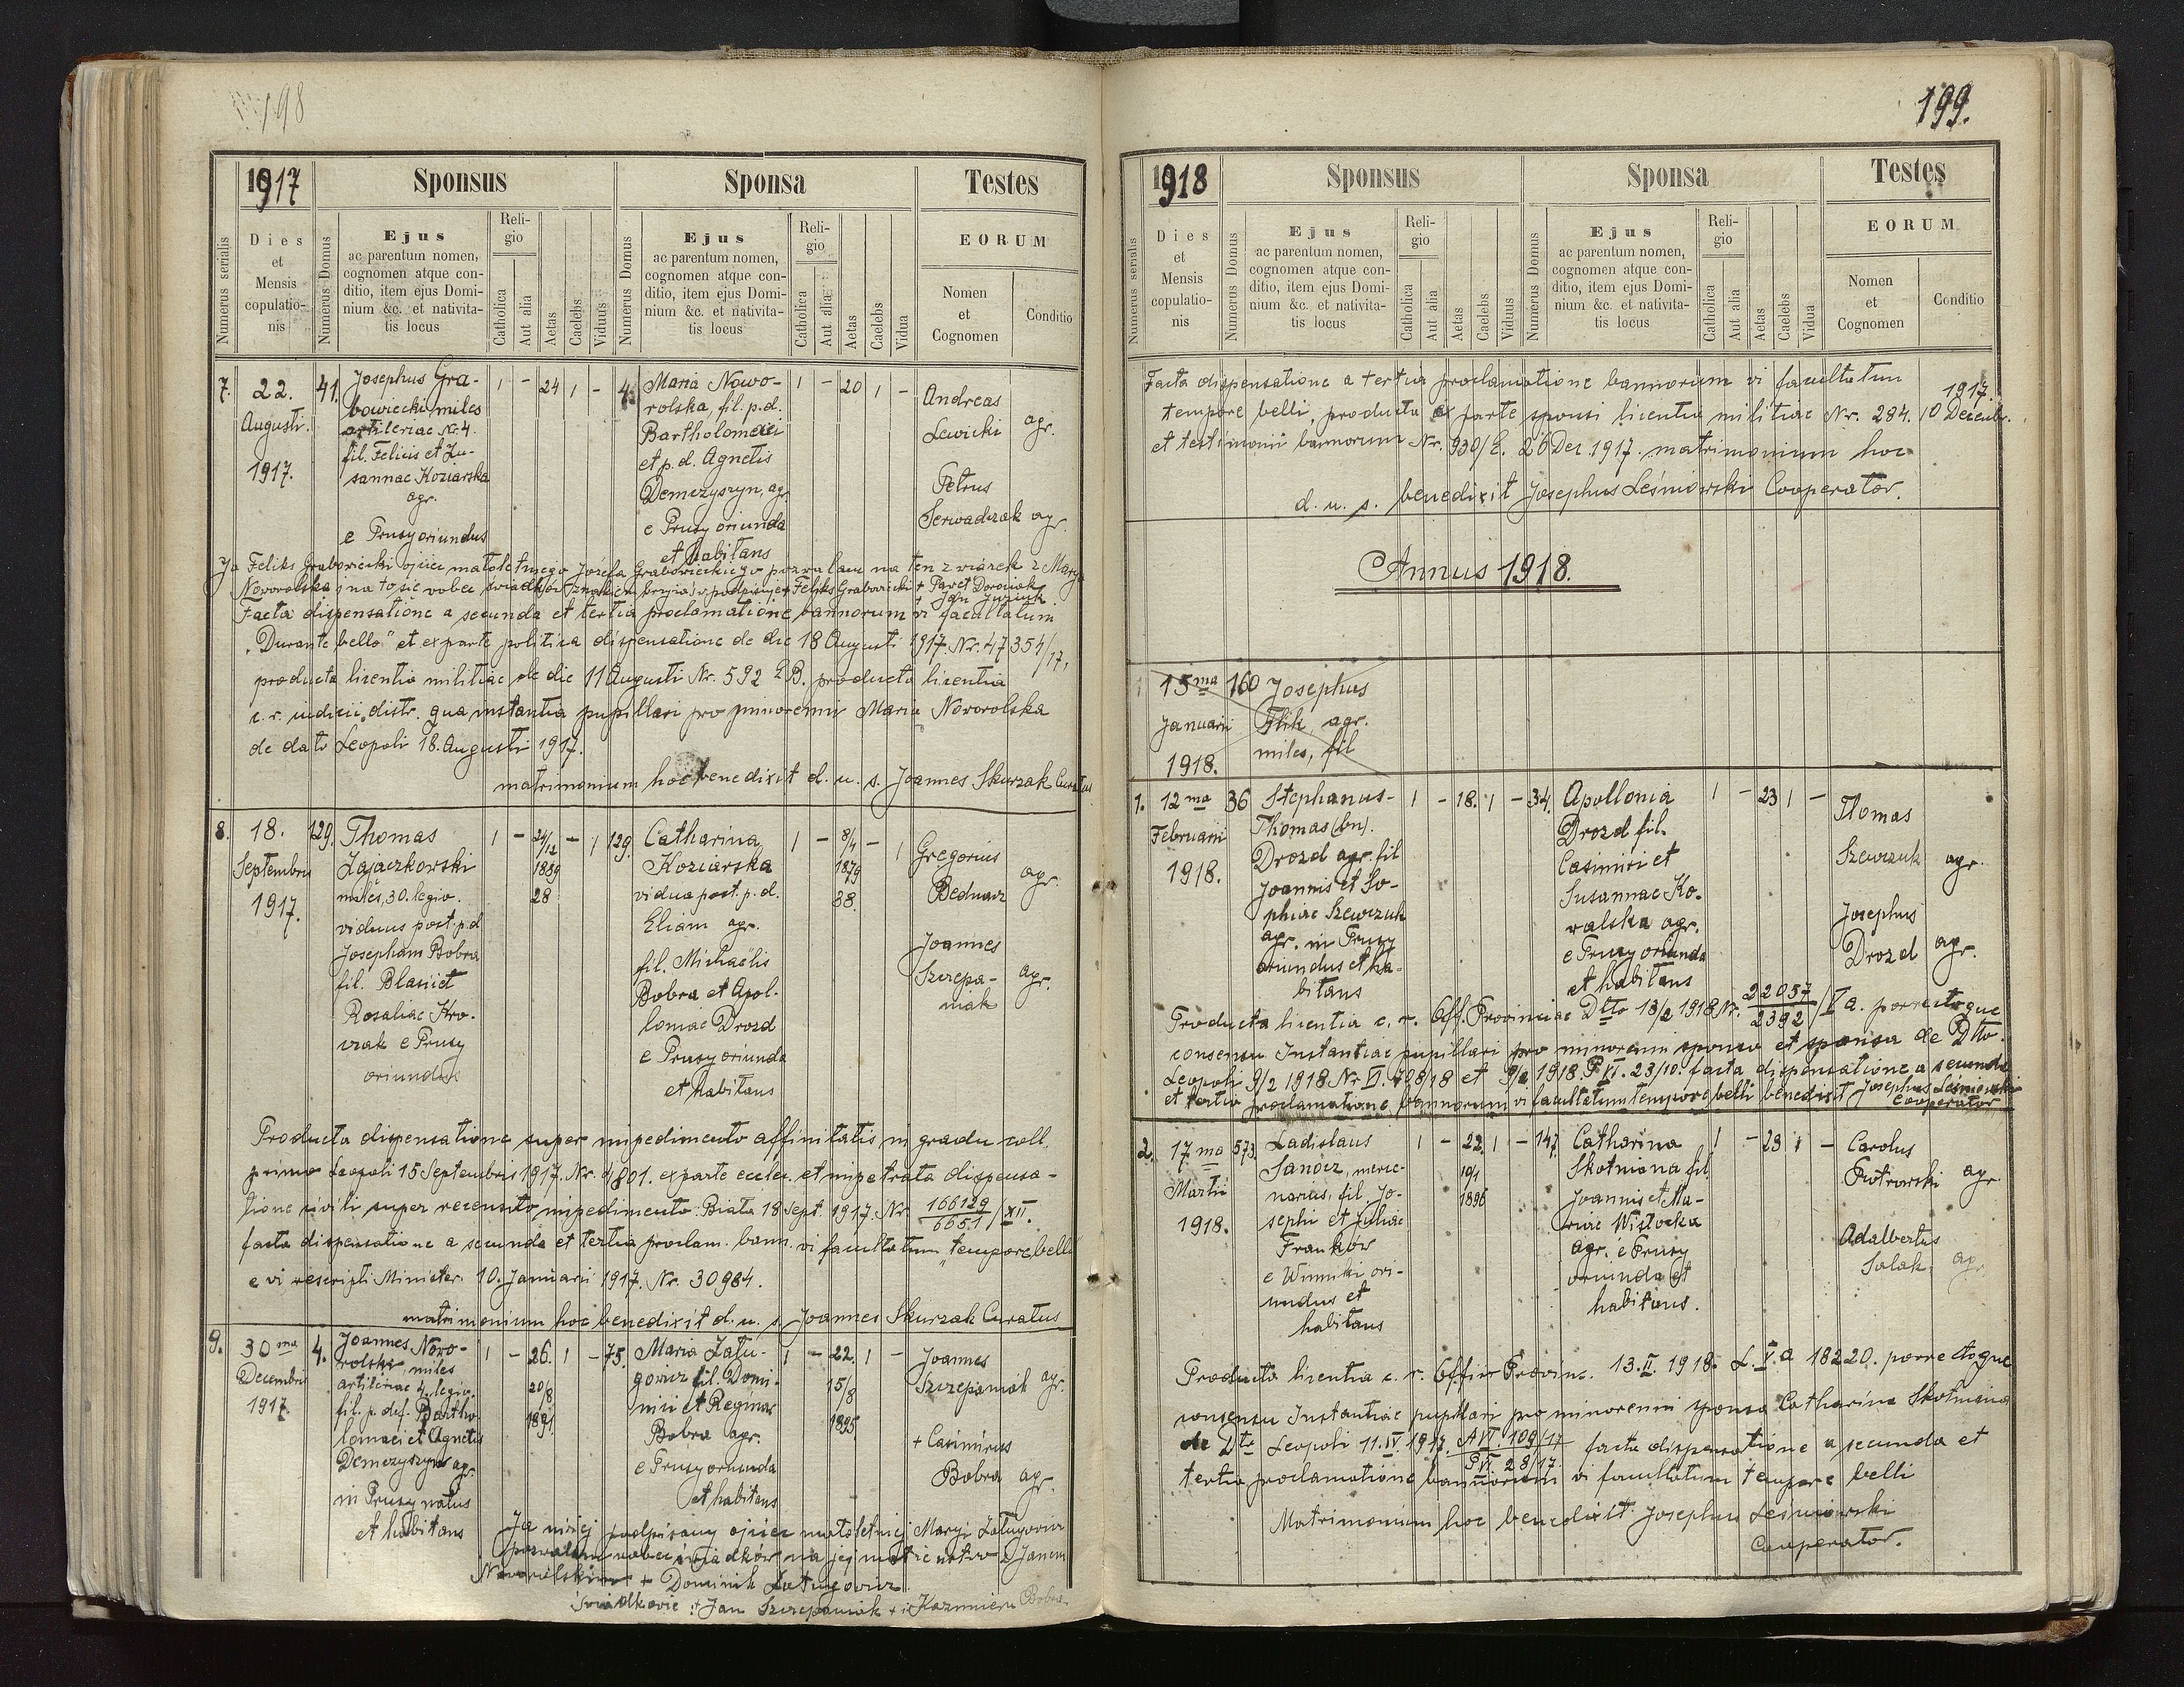 198
1917
Sponsus
Sponsa
Testes
Numerus serialis
Dies
et
Mensis
copulatio-
nis
Numerus Domus
Ejus
ac parentum nomen,
cognomen atque con-
ditio, item ejus Domi-
nium &c. et nativita-
tis locus
Reli-
gio
Catholica
Aut alia
Aetas
Caelebs
Viduus
Numerus Domus
Ejus
ac parentum nomen,
cognomen atque con-
ditio, item ejus Domi-
nium &c. et nativita-
tis locus
Reli-
gio
Catholica
Aut alia
Aetas
Caelebs
Vidua
EORUM
Nomen
et
Cognomen
Conditio
7.
22.
Augusti
1917.
41.
Josephus Gra-
bowiecki miles
artileriae Nr. 4.
fil. Felicis et Zu-
sannae Koziarska
agr.
e Prusy oriundus
1 - 24 1 -
4.
Maria Nowo-
rolska, fil. p. d.
Bartholomaei
et p. d. Agnetis
Demczyszyn, agr.
e Prusy oriunda
et habitans
1 - 20 1 -
Andreas
Lewicki agr.
Petrus
Serwadczak agr.
Ja Feliks Grabowiecki ojciec małoletniego Józefa Grabowieckiego pozwalam na ten związek z Maryą
Noworolską i na to się wobec świadków znakiem krzyża podpisuję + Feliks Grabowiecki + Paweł
Jan
Facta dispensatione a secunda et tertia proclamatione bannorum vi facultatum
"Durante bello" et ex parte politica dispensatione de die 18 Augusti 1917. Nr. 47354/17,
producta licentia militiae de die 11 Augusti Nr. 592 E.B. producta licentia
c. r. iudicii distr. qua instantia pupillari pro minorenni Maria Noworolska
de dato Leopoli 18. Augusti 1917.
matrimonium hoc benedixit d. u. s. Joannes Skurzak Curatus
8.
18.
Septembris
1917.
129.
Thomas
Zajaczkowski
miles, 30. legio.
viduus post. p. d
Josepham Bobra
fil. Blasii et
Rosaliae Kro-
czak e Prusy
oriundus
1 - 24/12 - 1
1889
28
129.
Catharina
Koziarska
vidua post. p. d.
Eliam agr.
fil. Michaëlis
Bobra et Apol-
loniae Drozd
e Prusy oriunda
et habitans
1 - 8/4 - 1
1879
38
Gregorius
Bednarz agr.
Joannes
Szczepa-
niak agr.
Producta dispensatione super impedimento affinitatis in gradu coll.
primo Leopoli 15 Septembris 1917. Nr. 4801. ex parte eccles. et impetrata dispensa-
tione civili super recensito impedimento: Biała 18 Sept. 1917. Nr. 166129/6651/XII.
facta dispensatione a secunda et tertia proclam. bann. vi facultatum "tempore belli"
e vi rescripti Minister. 10. Januarii 1917. Nr. 30984.
matrimonium hoc benedixit d. u. s. Joannes Skurzak Curatus
9.
30ma
Decembris
1917.
4.
Joannes Nowo-
rolski miles
artileriae 4. legio.
fil. p. def. Bartho-
lomaei et Agnetis
Demczyszyn agr.
in Prusy natus
et habitans
1 - 26. 1 -
20/8
1891
75.
Maria Łatu-
gowicz fil. Domi-
nici et Reginae
Bobra agr.
e Prusy oriunda
et habitans
1 - 22. 1 -
15/8
1895
Joannes
Szczepaniak agr.
+ Casimirus
Bobra agr.
Ja niżej podpisany ojciec małoletniej Maryi Łatugowicz
pozwalam wobec świadków na jej małżeństwo z Janem
Noworolskim + Dominik Łatugowicz
Świadkowie: + Jan Szczepaniak + i Kazimierz Bobra
199.
1918
Sponsus
Sponsa
Testes
Numerus serialis
Dies
et
Mensis
copulatio-
nis
Numerus Domus
Ejus
ac parentum nomen,
cognomen atque con-
ditio, item ejus Domi-
nium &c. et nativita-
tis locus
Reli-
gio
Catholica
Aut alia
Aetas
Caelebs
Viduus
Numerus Domus
Ejus
ac parentum nomen,
cognomen atque con-
ditio, item ejus Domi-
nium &c. et nativita-
tis locus
Reli-
gio
Catholica
Aut alia
Aetas
Caelebs
Vidua
EORUM
Nomen
et
Cognomen
Conditio
Facta dispensatione a tertia proclamatione bannorum vi facultatum
tempore belli, producta ex parte sponsi licentia militiae Nr. 284. 10 Decemb. 1917.
et testimonii bannorum Nr. 930/E. 26 Dec. 1917. matrimonium hoc
d. u. s. benedixit Josephus Leśniowski Cooperator.
Annus 1918.
1
15ma
Januarii
1918.
160
Josephus
Flik, agr.
miles, fil
1.
12ma
Februarii
1918.
36
Stephanus-
Thomas (bn).
Drozd agr. fil
Joannis et So-
phiae Szewczuk
agr. in Prusy
oriundus et ha-
bitans
1 - 18. 1 -
34.
Apollonia
Drozd fil.
Casimiri et
Susannae Ko-
walska agr.
e Prusy oriunda
et habitans
1 - 23 1 -
Thomas
Szewczuk agr.
Josephus
Drozd agr.
Producta licentia c. r. Off. Provinciae Dtto 13/2 1918 Nr. 22057/2392/Va. porrectoque
consensu Instantiae pupillari pro minorenni sponso et sponsa de Dtto.
Leopoli 9/2 1918 Nr VI. 708/18 et 9/2 1918. P VI. 23/10. facta dispensatione a secunda
et tertia proclamatione bannorum vi facultatum tempore belli benedixit Josephus Leśniowski
Cooperator
2.
17.ma
Martii
1918.
573.
Ladislaus
Sanocz, merce-
narius, fil. Jo-
sephi et Juliae
Franków
e Winniki ori-
undus et
habitans
1 - 22 1 -
19/1
1896
147.
Catharina
Skotniona fil.
Joannis et Ma-
riae Wisłocka
agr. e Prusy
oriunda et
habitans.
1 - 23 1 -
Carolus
Piotrowski agr
Adalbertus
Salak agr
Producta licentia c. r. Offic Provinc. 13. II. 1918. L. V. a 18220. porrectoque
consensu Instantiae pupillari pro minorenni sponsa Catharina Skotniona
de Dto Leopoli 11. IV. 1917. A VI. 109/17 facta dispensatione a secunda et
P VI. 28/17
tertia proclamatione bannorum vi facultatum tempore belli
Matrimonium hoc benedixit Josephus Leśniowski
Cooperator.